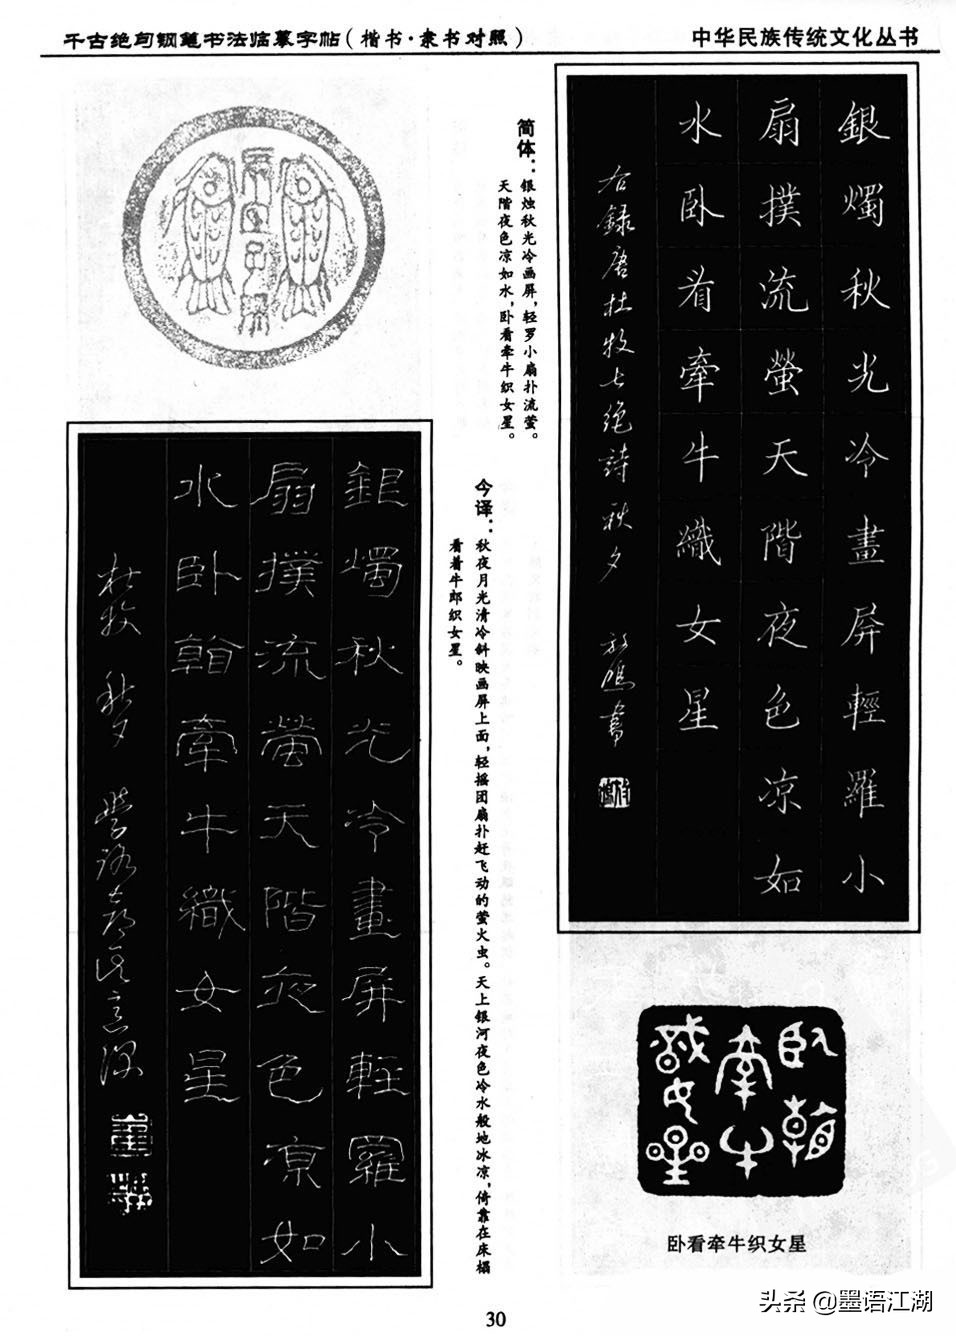 千古绝句钢笔书法临摹字帖(楷书·隶书对照)
中华民族传统文化丛书
銀燭秋光冷畫屏輕羅小
扇撲流螢天階夜色凉如
水卧看牽牛織女星
右録唐杜牧七绝詩秋夕
書
简体：银烛秋光冷画屏，轻罗小扇扑流萤。
天階夜色凉如水，卧看牵牛织女星。
今译：秋夜月光清冷斜映画屏上面，轻摇团扇扑赶飞动的萤火虫。天上银河夜色冷水般地冰凉，倚靠在床榻
看着牛郎织女星。
銀燭秋光冷畫屏輕羅小
扇撲流螢天階夜色凉如
水卧翰牽牛織女星
杜牧 秋夕
卧翰
牽牛
織女星
卧看牵牛织女星
30
头条 @墨语江湖